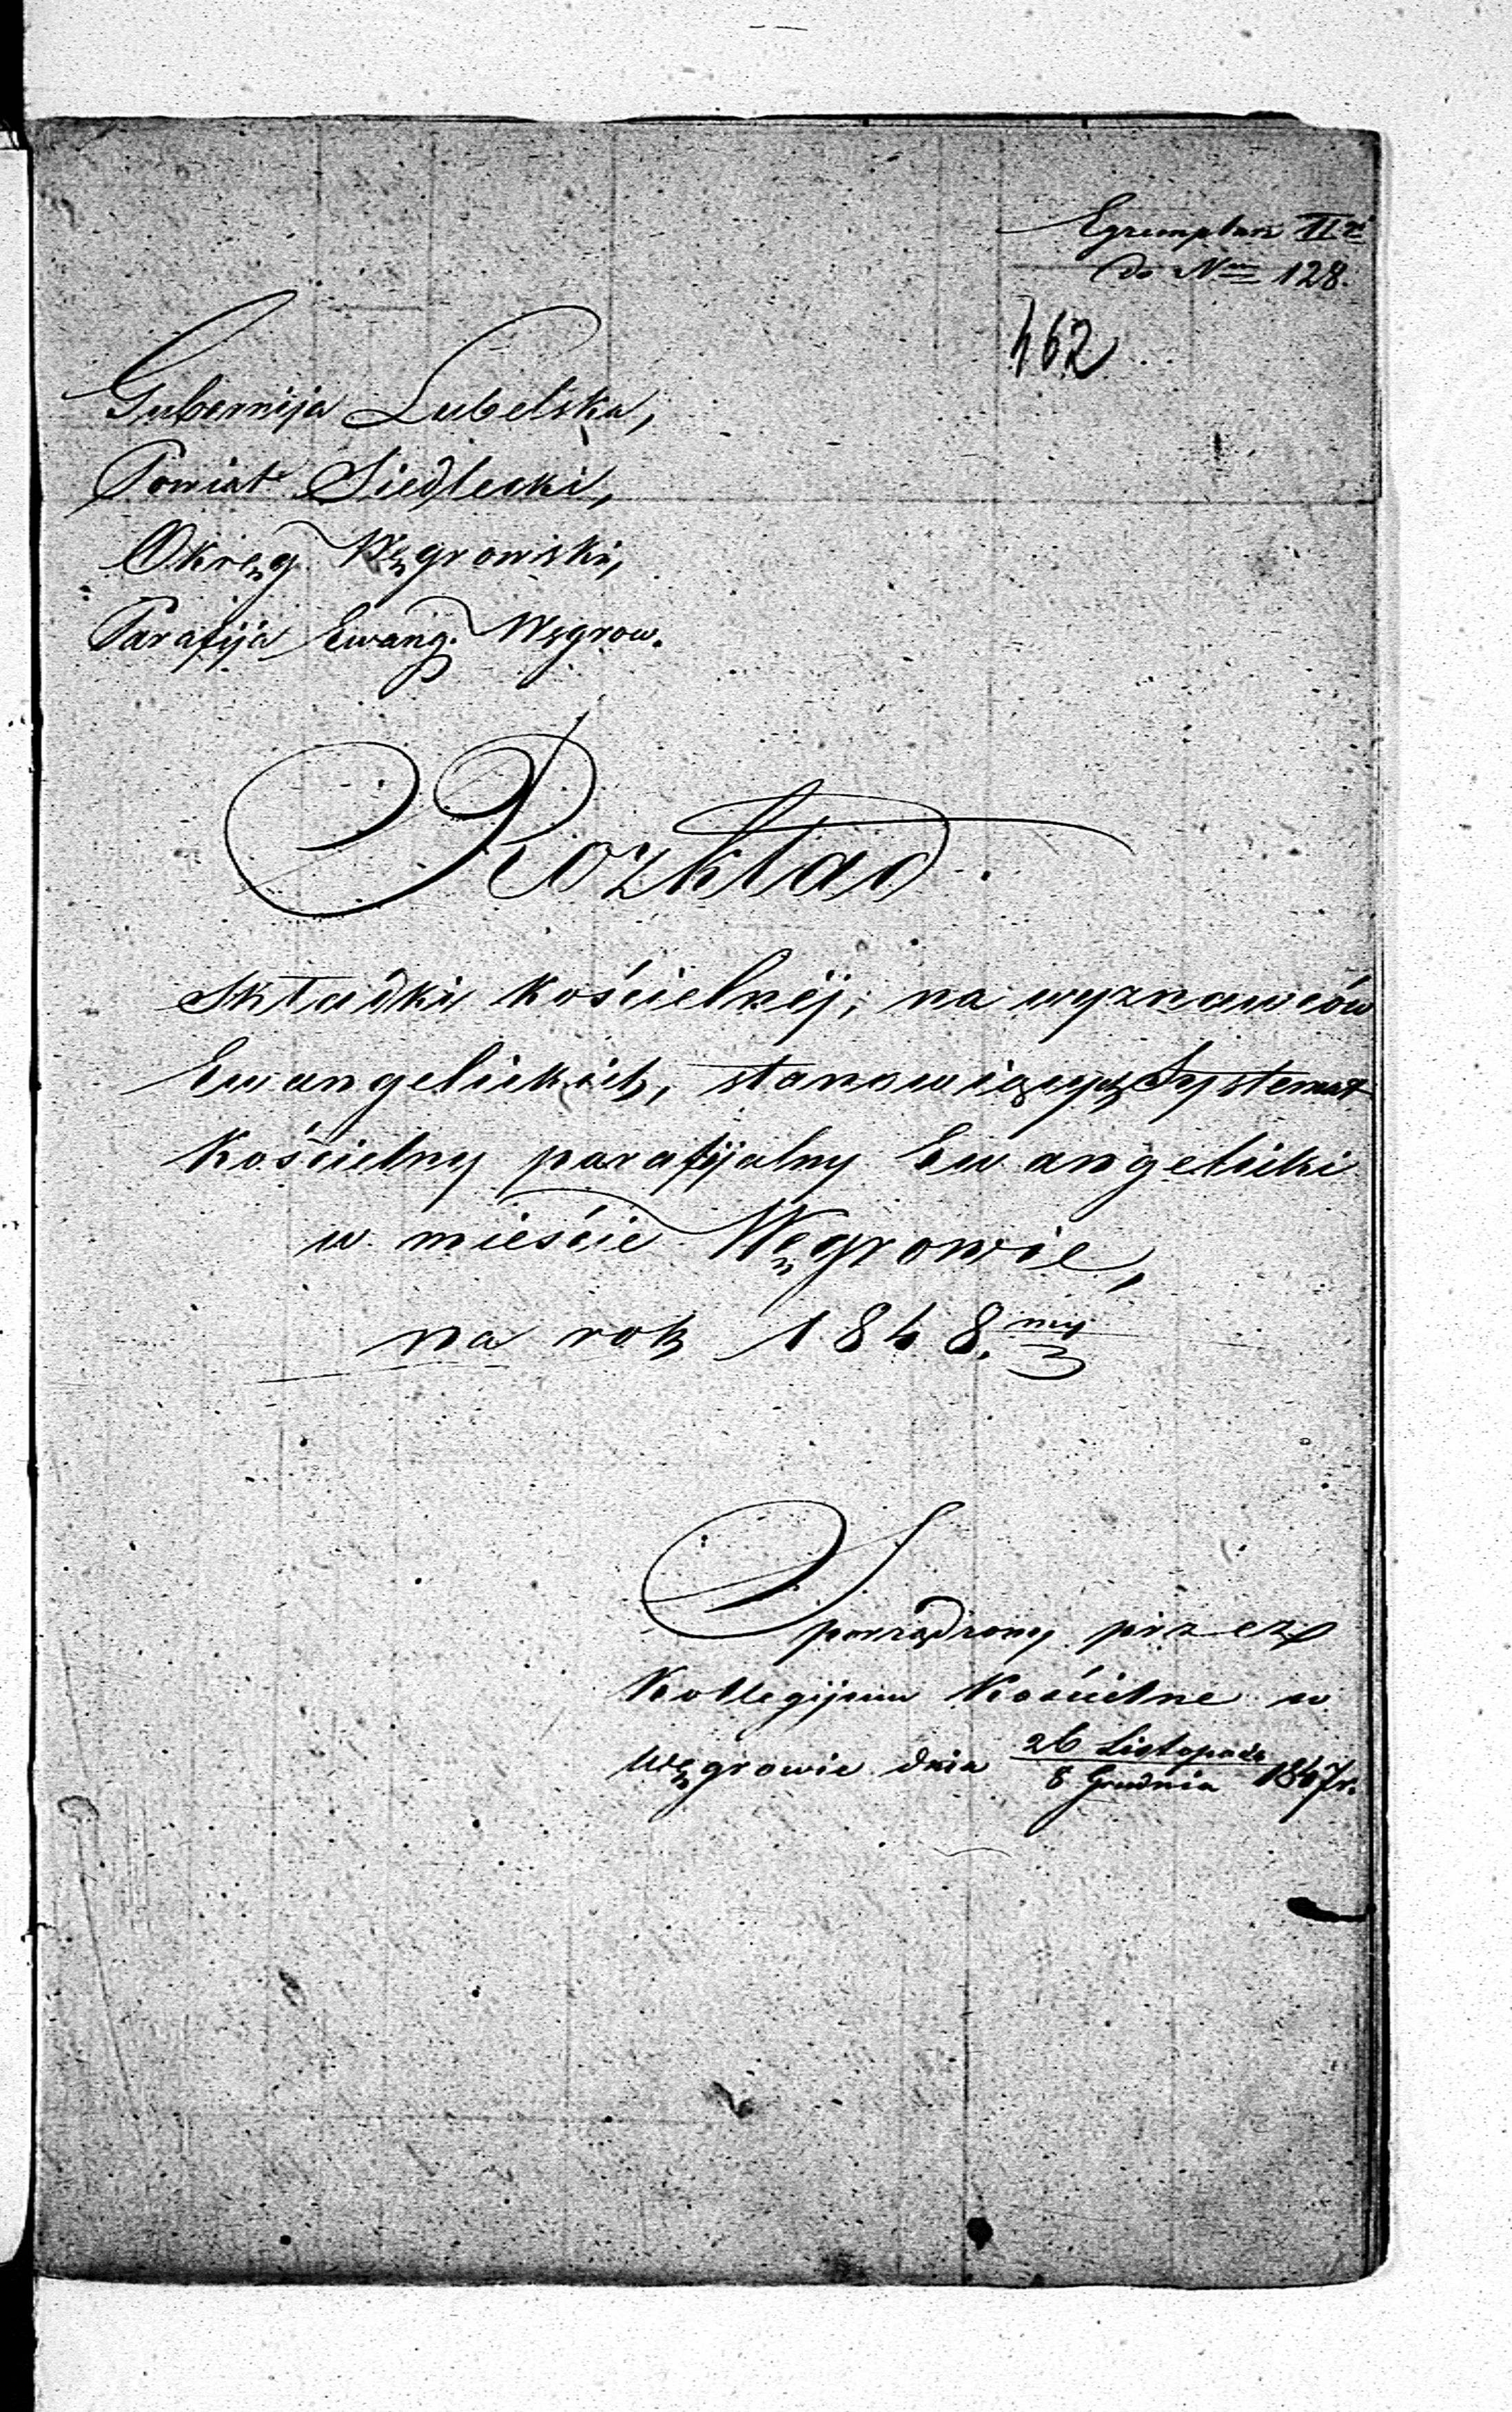 Egzemplarz IIgi
do Nru 128.
462
Gubernija Lubelska,
Powiat Siedlecki,
Okręg Węgrowski,
Parafija Ewang. Węgrow.
Rozkład
składki kościelnéj, na wyznawców
Ewangelickich, stanowiących Systemat
Kościelny parafijalny Ewangelicki
w mieście Węgrowie,
na rok 1848.my
Sporządzony przez
Kollegijum Kościelne w
Węgrowie dnia 26 Listopada / 8 Grudnia 1847 r.